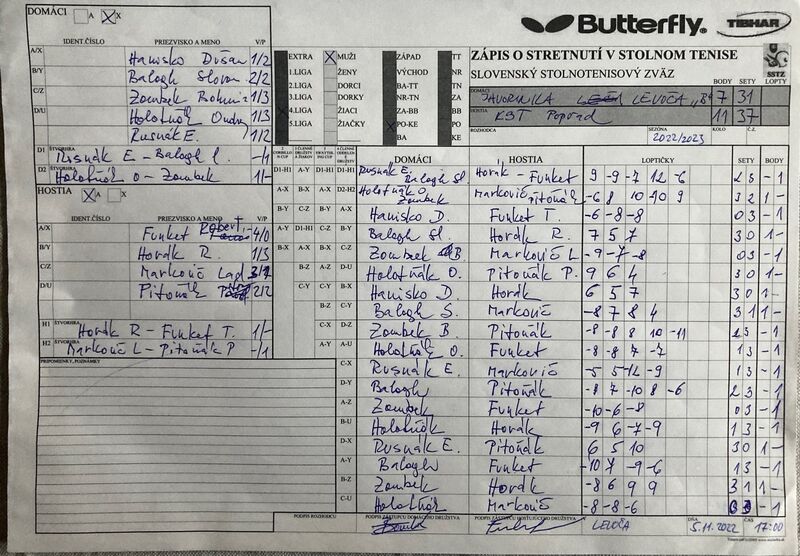 DOMÁCI A X
Butterfly TIBHAR
IDENT.ČÍSLO PRIEZVISKO A MENO V/P
A/X Hanisko Dušan 1/2
B/Y Balogh Slavom 2/2
C/Z Zombek Bohumir 1/3
D/U Holotňák Ondrej 1/3
Rusnák E. 1/2
D1 ŠTVORHRA Rusnák E - Balogh -/1
D2 ŠTVORHRA Holotňák O - Zombek 1/-
HOSTIA A X
IDENT.ČÍSLO PRIEZVISKO A MENO V/P
A/X Funket Robert 4/0
B/Y Hordk R. 1/3
C/Z Markovič Lad
D/U Pitoňák 2/2
H1 ŠTVORHRA Hordk R - Funket T. 1/-
H2 ŠTVORHRA Markovič L - Pitoňák P -/1
PRIPOMIENKY, POZNÁMKY
EXTRA MUŽI ZÁPAD TT
1.LIGA ŽENY VÝCHOD NR
2.LIGA DORCI BA-TT TN
3.LIGA DORKY NR-TN ZA
4.LIGA ŽIACI ZA-BB BB
5.LIGA ŽIAČKY PO-KE PO
BA KE
ZÁPIS O STRETNUTÍ V STOLNOM TENISE
SLOVENSKÝ STOLNOTENISOVÝ ZVÄZ
SSTZ
BODY SETY LOPTY
DOMÁCI JAVORINKA LEVOČA "B" 7 31
HOSTIA KST Poprad 11 37
ROZHODCA SEZÓNA 2022/2023 KOLO Č.
DOMÁCI HOSTIA LOPTIČKY SETY BODY
D1-H1 A-Y D1-H1 D1-H1 Rusnák E. Balogh Sl. Horák - Funket 9 -9 -7 12 -6 2 3 -1
A-X B-X A-X D2-H2 Holotňák O Zombek Markovič Pitoňák -6 8 10 -10 9 3 2 1-
B-Y C-Z B-Y A-X Hanisko D. Funket T. -6 -8 -8 0 3 -1
A-Y D1-H1 C-Z B-Y Balogh Sl. Hordk R. 7 5 7 3 0 1-
B-X A-X A-Y C-Z Zombek B. Markovič L -9 -7 -8 0 3 -1
B-Z A-Z D-U Holotňák O. Pitoňák P. 9 6 4 3 0 1-
C-Y C-Y B-X A-Y Hanisko D. Hordk 6 5 7 3 0 1-
B-Z C-Y Balogh S. Markovič -8 7 8 4 3 1 1-
C-X D-Z Zombek B. Pitoňák -8 -8 8 10 -11 2 3 -1
A-Y A-U Holotňák O. Funket -8 -8 7 -7 1 3 -1
C-X Rusnák E. Markovič -5 5 -12 -9 1 3 -1
D-Y Balogh Pitoňák -8 7 -10 8 -6 2 3 -1
A-Z Zombek Funket -10 -6 -8 0 3 -1
B-U Holotňák Hordk -9 6 -7 -9 1 3 -1
D-X Rusnák E. Pitoňák 6 5 10 3 0 1-
A-Y Balogh Funket -10 7 -9 -6 1 3 -1
B-Z Zombek Hordk -8 6 9 9 3 1 1-
C-U Holotňák Markovič -8 -8 -6 0 3 -1
PODPIS ROZHODCU PODPIS ZÁSTUPCU DOMÁCEHO DRUŽSTVA PODPIS ZÁSTUPCU HOSŤUJÚCEHO DRUŽSTVA V LEVOČA DŇA 5.11.2022 ČAS 17:00